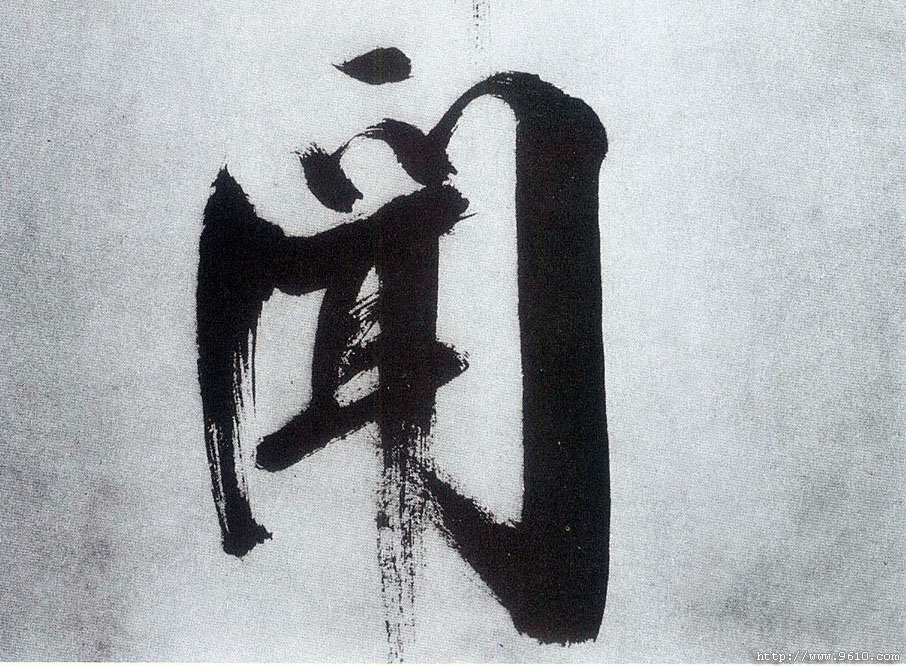 闻
http://www.9610.com